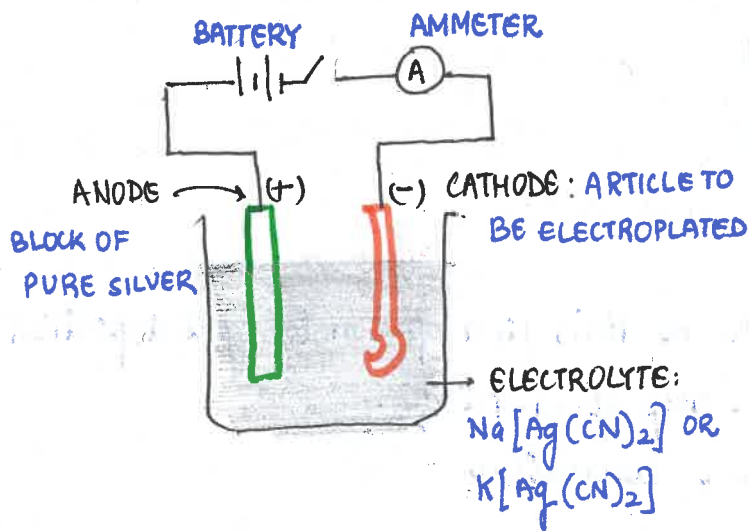 BATTERY
AMMETER
A
ANODE
(+)
(-) CATHODE: ARTICLE TO
BE ELECTROPLATED
BLOCK OF
PURE SILVER
ELECTROLYTE:
Na[Ag(CN)2] OR
K[Ag(CN)2]